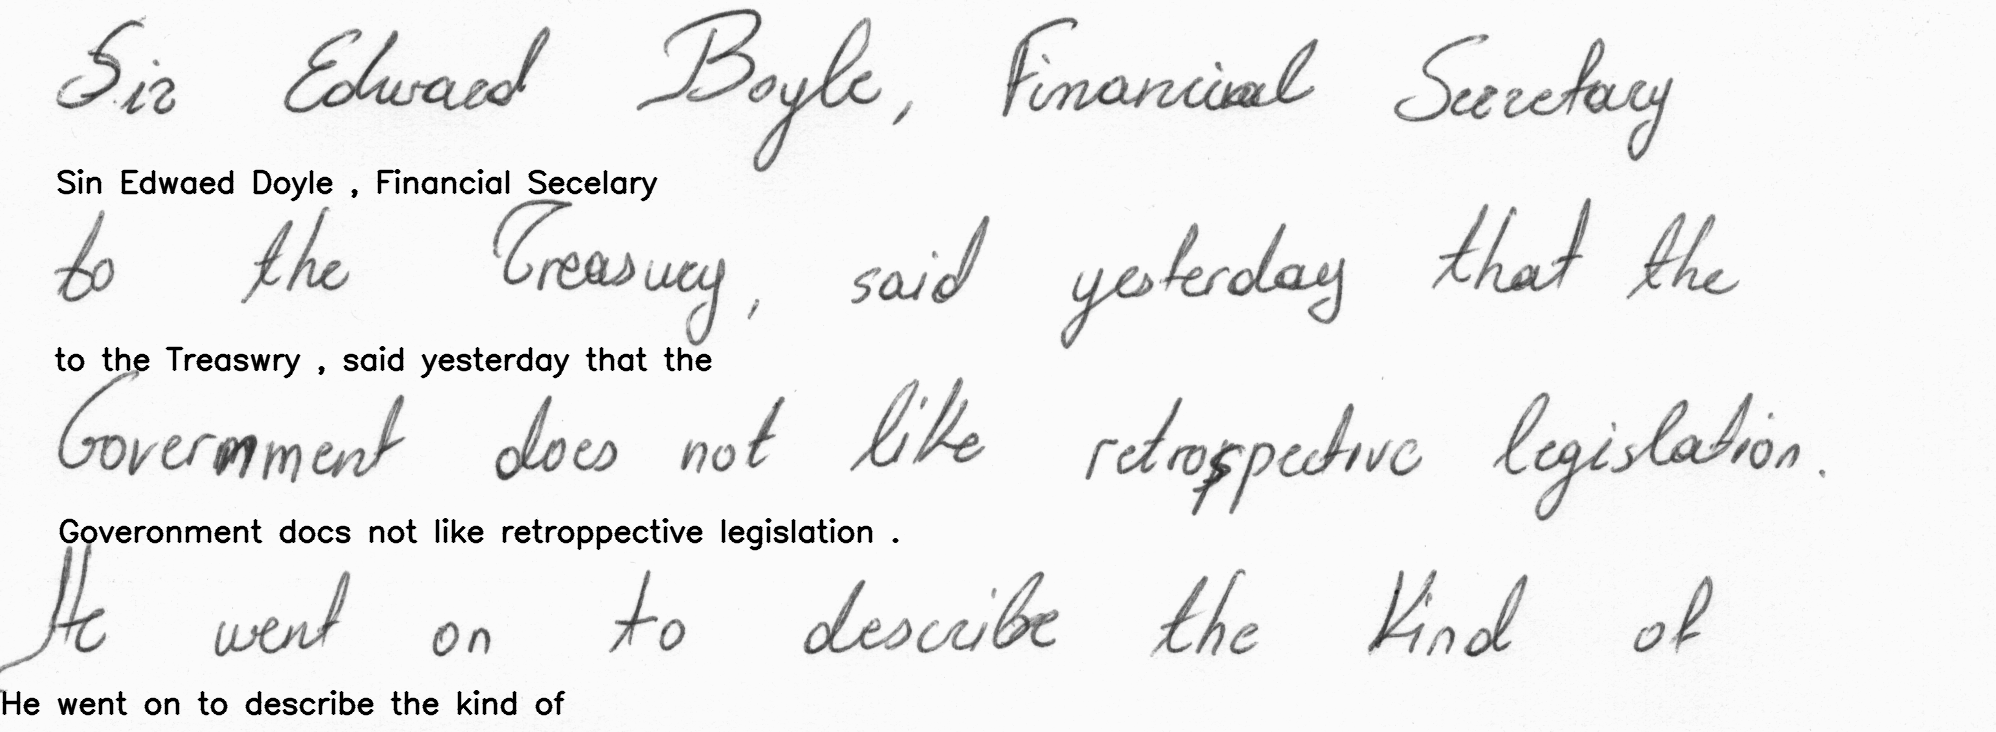 Sir Edward Boyle, Financial Secretary
Sin Edwaed Doyle , Financial Secelary
to the Treasury, said yesterday that the
to the Treaswry , said yesterday that the
Government does not like retrospective legislation.
Goveronment docs not like retroppective legislation .
He went on to describe the kind of
He went on to describe the kind of